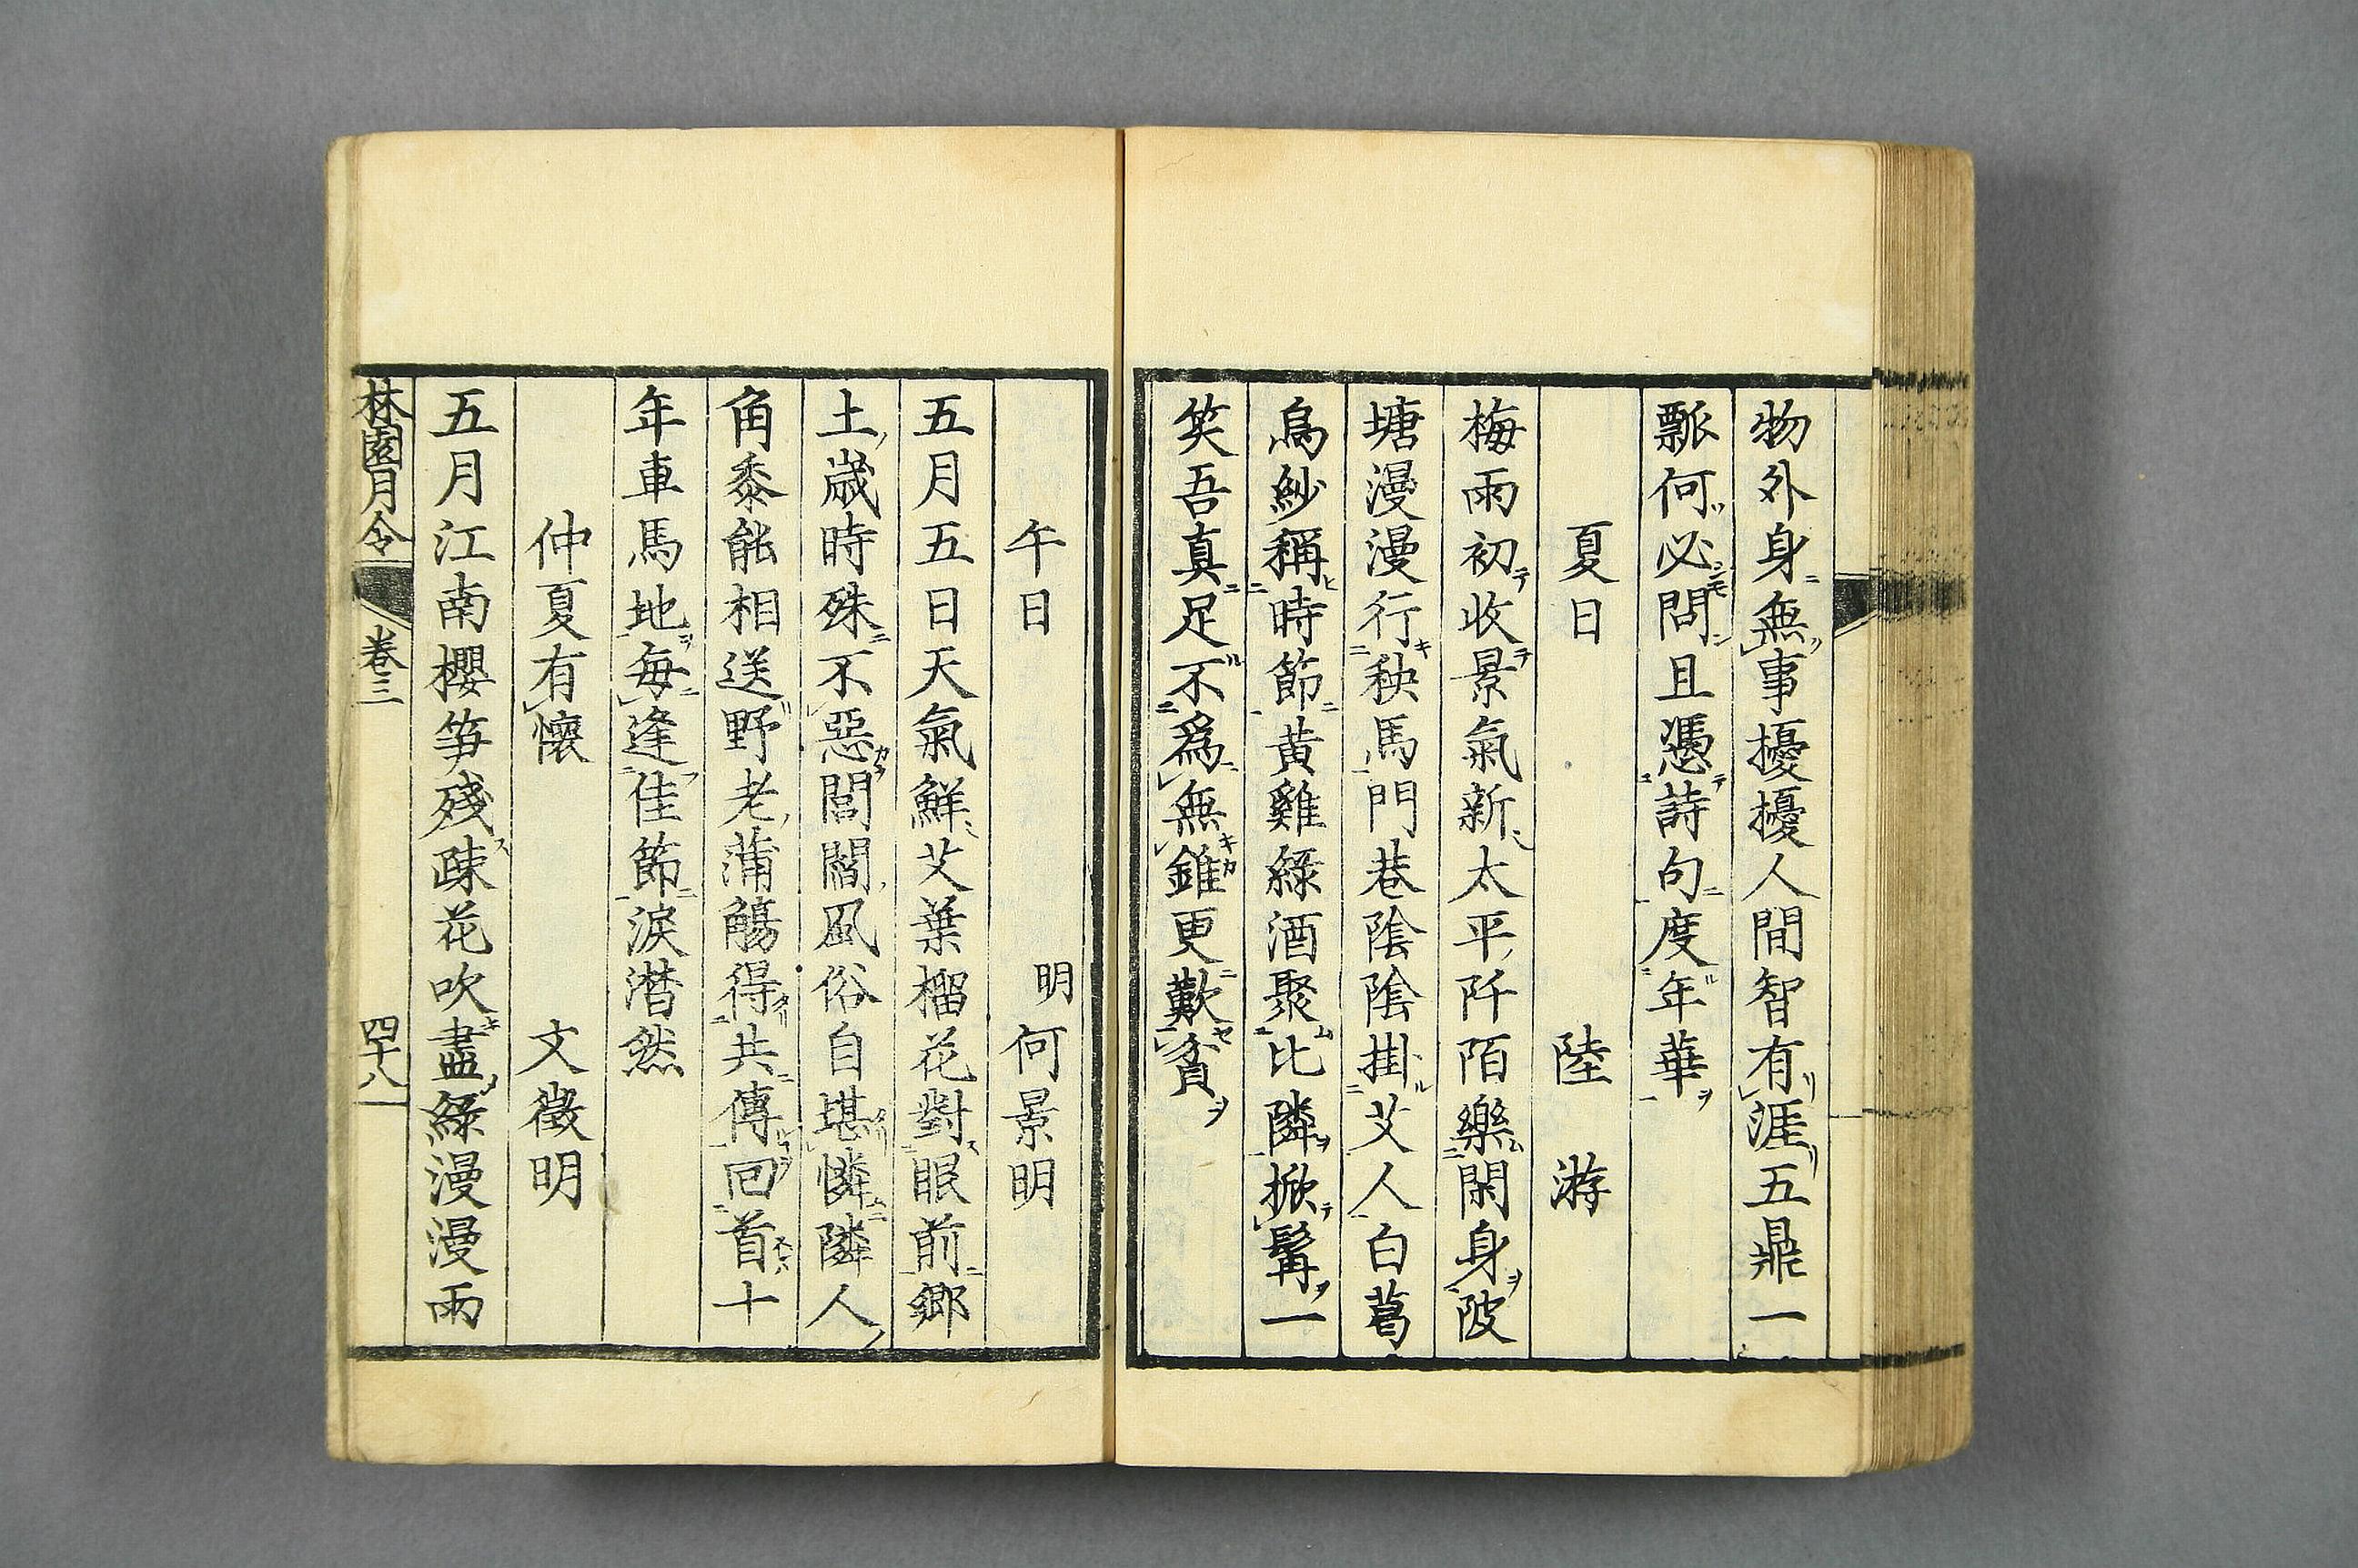 物外身無事擾擾人間智有涯五鼎一
瓢何必問且憑詩句度年華
夏日　陸游
梅雨初收景氣新太平阡陌樂閑身陂
塘漫漫行秧馬門巷陰陰掛艾人白葛
烏紗稱時節黄雞綠酒聚比隣掀髯一
笑吾真足不爲無錐更歎貧
午日　明何景明
五月五日天氣鮮艾葉榴花對眼前鄉
土歲時殊不惡閭閻風俗自堪憐隣人
角黍能相送野老蒲觴得共傳回首十
年車馬地每逢佳節淚潸然
仲夏有懷　文徵明
五月江南櫻笋殘疎花吹盡綠漫漫雨
林園月令　卷三　四十八